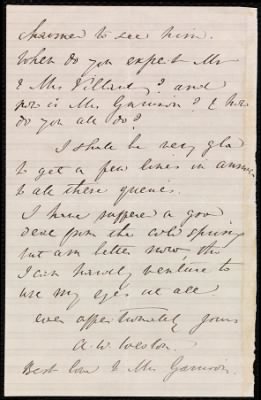 charmed to see him.
When do you expect Mr
& Mrs Villard? and
how is Mr Garrison? & how
do you all do?
I shall be very glad
to get a few lines in answer
to all these queries.
I have suffered a good
deal from the cold spring
but am better now, tho
I can hardly venture to
use my eyes at all.
ever affectionately yours
A. W. Weston.
Best love to Mr Garrison.